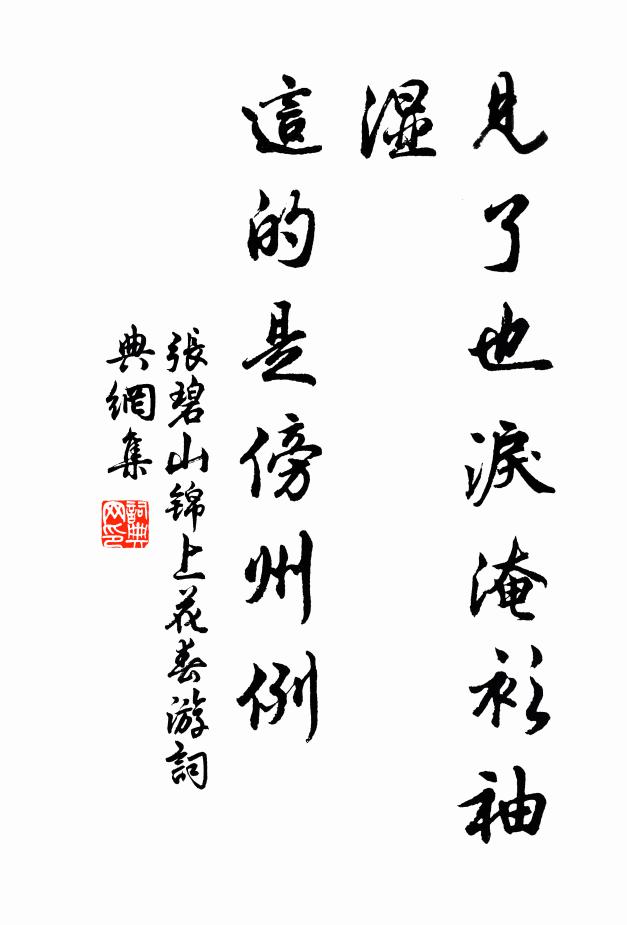 見了也淚淹衫袖
湿
這的是傍州例
張碧山锦上花春游詞
典網集
詞典
网印